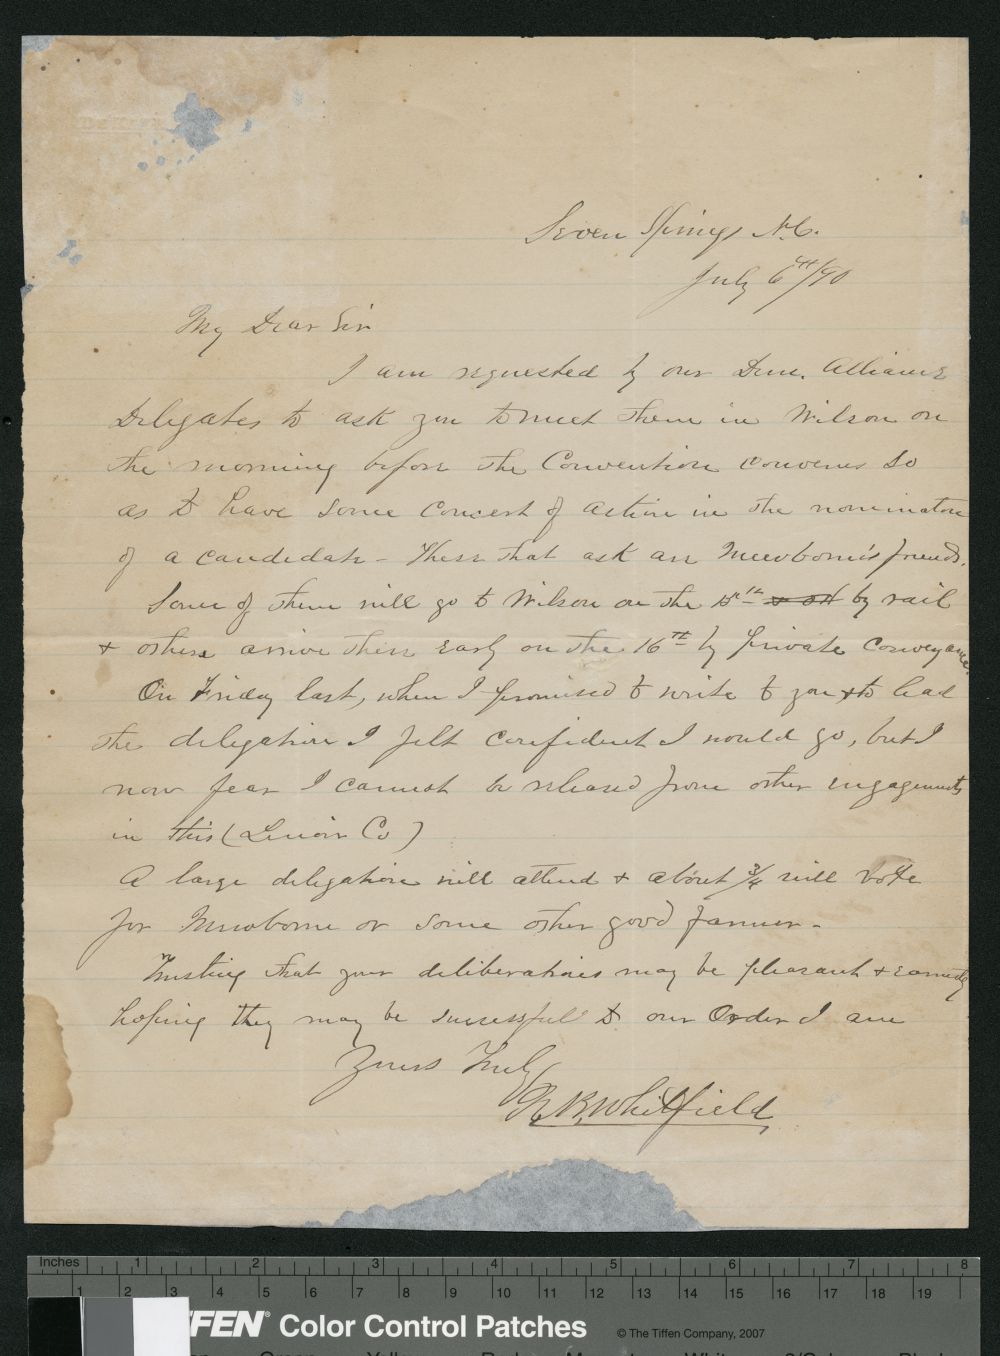 Seven Springs N.C.
July 6th/90
My Dear Sir
I am requested by our Dem. Alliance
Delegates to ask you to meet them in Wilson on
the morning before the Convention convenes so
as to have some concert of action in the nomination
of a candidate - These that ask are Mewborne's friends.
Some of them will go to Wilson on the 15th by rail
& others arrive there early on the 16th by private conveyance.
On Friday last, when I promised to write to you & to lead
the delegation I felt confident I would go, but I
now fear I cannot be released from other engagements
in this (Lenoir Co)
A large delegation will attend & about 3/4 will vote
for Mewborne or some other good farmer -
Trusting that your deliberations may be pleasant & earnestly
hoping they may be successful to our Order I am
Yours Truly
N. B. Whitfield
Inches 1 2 3 4 5 6 7 8
1 2 3 4 5 6 7 8 9 10 11 12 13 14 15 16 17 18 19
TIFFEN® Color Control Patches © The Tiffen Company, 2007